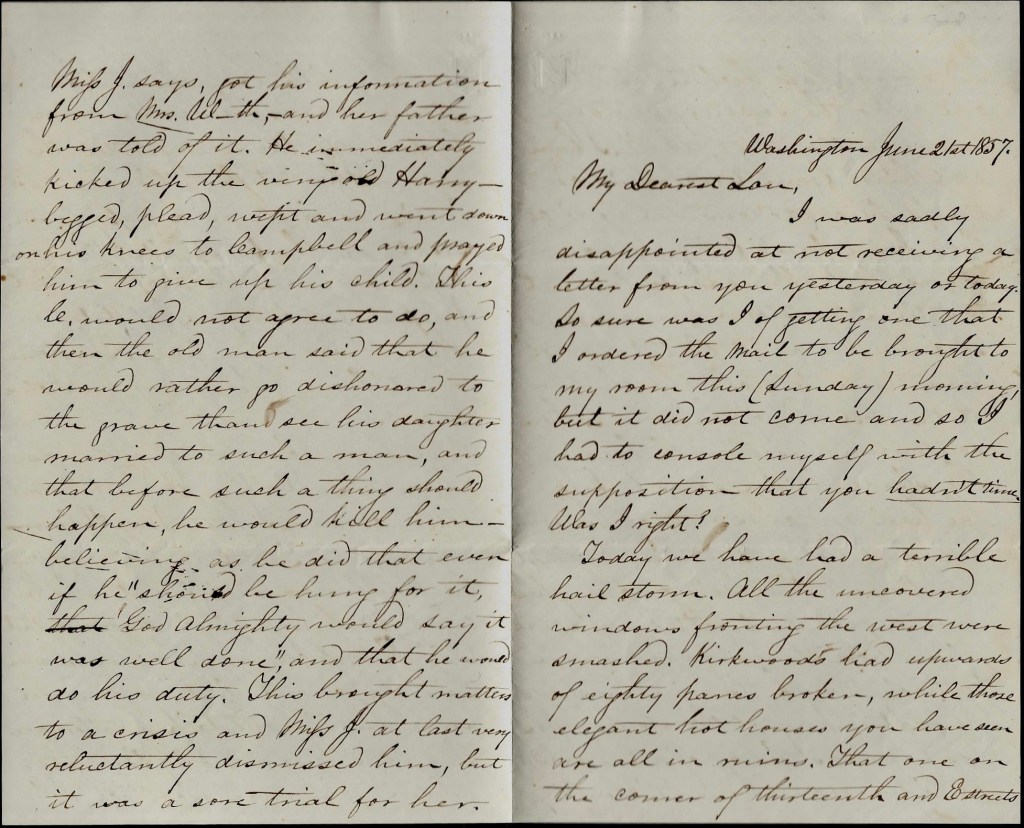 Miss J. says, got his information
from Mrs. W-th,- and her father
was told of it. He immediately
kicked up the very old Harry-
begged, plead, wept and went down
on his knees to Campbell and prayed
him to give up his child. This
C. would not agree to do, and
then the old man said that he
would rather go dishonored to
the grave than see his daughter
married to such a man, and
that before such a thing should
happen, he would kill him-
believing as he did that even
if he "should be hung for it,
that God Almighty would say it
was well done", and that he would
do his duty. This brought matters
to a crisis and Miss J. at last very
reluctantly dismissed him, but
it was a sore trial for her.
Washington June 21st 1857.
My Dearest Lou,
I was sadly
disappointed at not receiving a
letter from you yesterday or today.
So sure was I of getting one that
I ordered the mail to be brought to
my room this (Sunday) morning,
but it did not come and so I
had to console myself with the
supposition that you hadn't time.
Was I right?
Today we have had a terrible
hail storm. All the uncovered
windows fronting the west were
smashed. Kirkwood's had upwards
of eighty panes broken, while those
elegant hot houses you have seen
are all in ruins. That one on
the corner of thirteenth and E streets